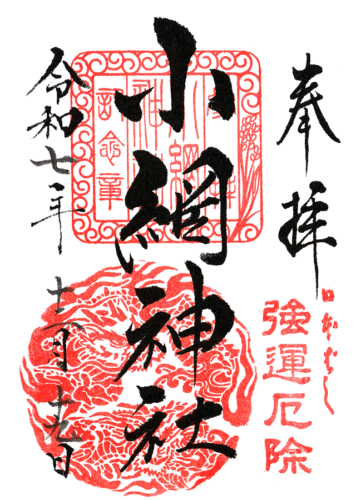 奉拝
日本ばし
強運厄除
小網神社
令和七年十一月十九日